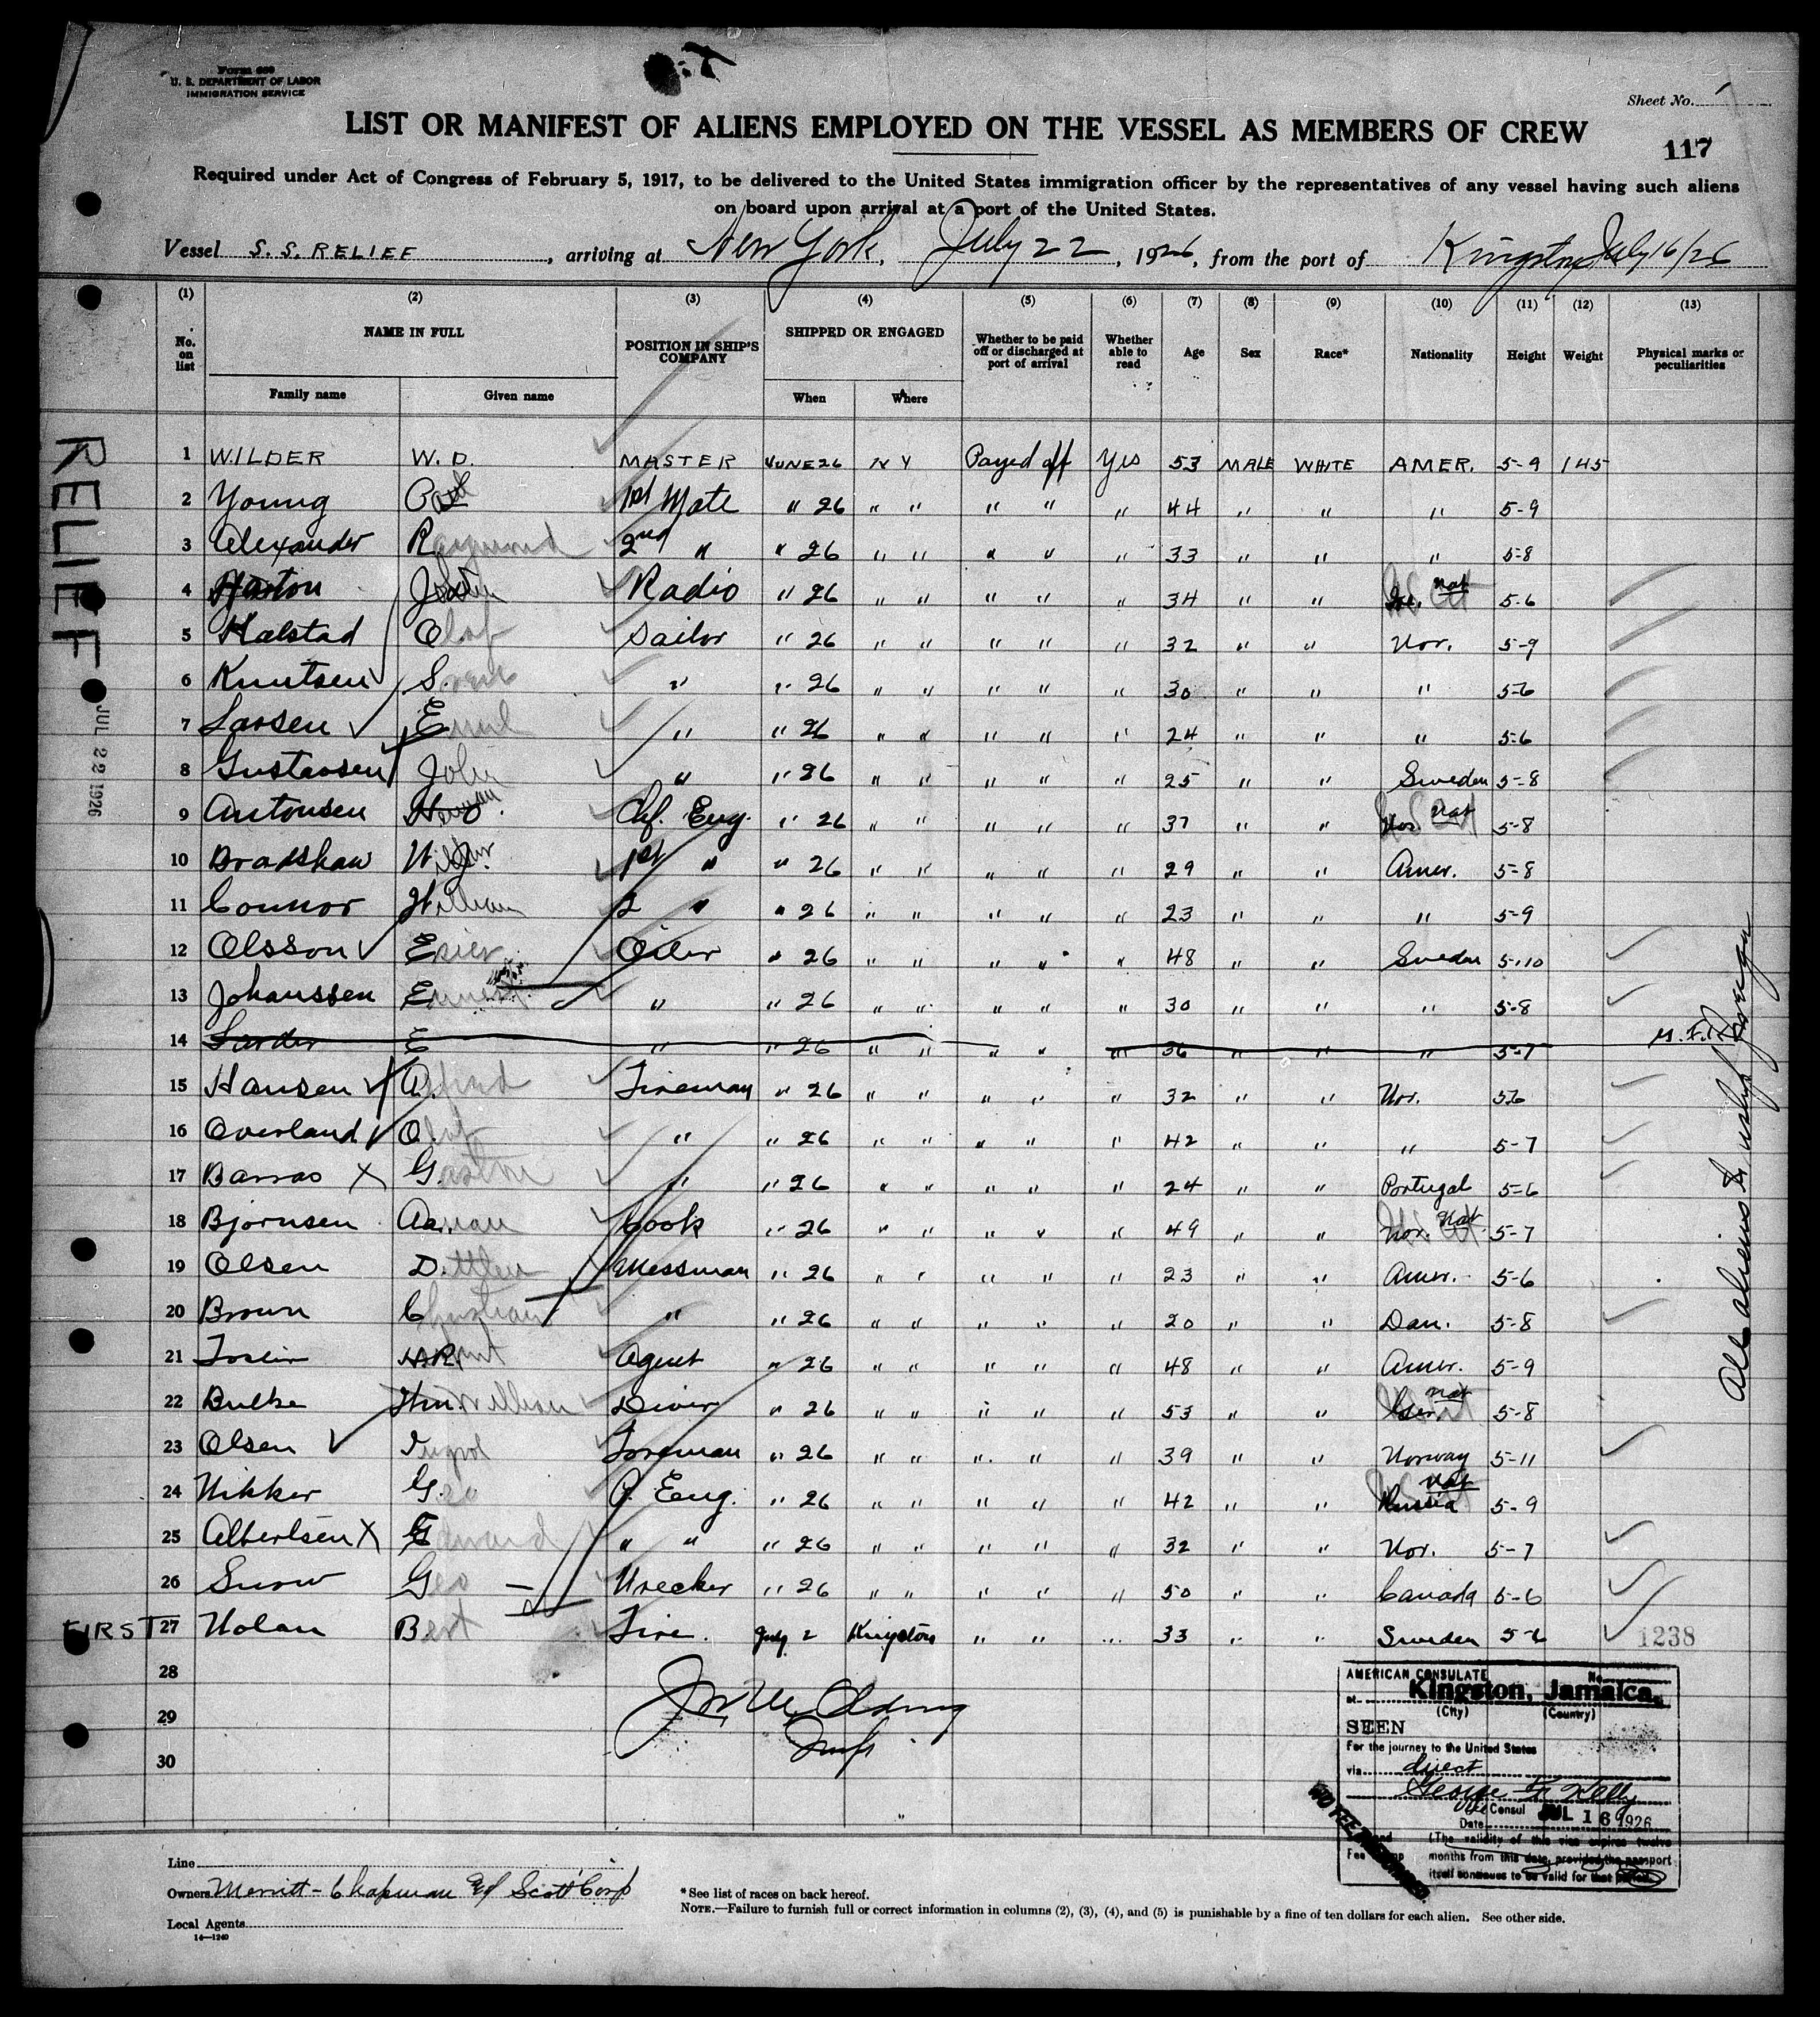 Form 689
U. S. DEPARTMENT OF LABOR
IMMIGRATION SERVICE
Sheet No. 1
LIST OR MANIFEST OF ALIENS EMPLOYED ON THE VESSEL AS MEMBERS OF CREW
117
Required under Act of Congress of February 5, 1917, to be delivered to the United States immigration officer by the representatives of any vessel having such aliens
on board upon arrival at a port of the United States.
Vessel S.S. RELIEF, arriving at New York, July 22, 1926, from the port of Kingston July 16/26
(1) (2) (3) (4) (5) (6) (7) (8) (9) (10) (11) (12) (13)
No. on list NAME IN FULL POSITION IN SHIP'S COMPANY SHIPPED OR ENGAGED Whether to be paid off or discharged at port of arrival Whether able to read Age Sex Race* Nationality Height Weight Physical marks or peculiarities
Family name Given name When Where
1 WILDER W. D. MASTER JUNE 26 N Y Payed off Yes 53 MALE WHITE AMER. 5-9 145
2 Young Paul 1st Mate " 26 " " " " " 44 " " " 5-9
3 Alexander Raymond 2nd " " 26 " " " " " 33 " " " 5-8
4 Radio " 26 " " " " " 34 " " nat 5-6
5 Halstad Olaf Sailor " 26 " " " " " 32 " " Nor. 5-9
6 Knutsen S. " " 26 " " " " " 30 " " " 5-6
7 Larsen Emil " " 26 " " " " " 24 " " " 5-6
8 Gustavsen John " " 26 " " " " " 25 " " Sweden 5-8
9 Antonsen Chf. Eng. " 26 " " " " " 37 " " Nor. nat 5-8
10 Bradshaw 1st " " 26 " " " " " 29 " " Amer. 5-8
11 Connor William 2 " " 26 " " " " " 23 " " " 5-9
12 Olsson Oiler " 26 " " " " " 48 " " Sweden 5-10
13 Johanssen Ernest " " 26 " " " " " 30 " " " 5-8
14 E " " 26 " " " " " 36 " " " 5-7
15 Hansen Fireman " 26 " " " " " 32 " " Nor. 5-6
16 Overland Olaf " " 26 " " " " " 42 " " " 5-7
17 Barras X Gaston " " 26 " " " " " 24 " " Portugal 5-6
18 Bjornsen Cook " 26 " " " " " 49 " " Nor. nat 5-7
19 Olsen Messman " 26 " " " " " 23 " " Amer. 5-6
20 Brown Christian " " 26 " " " " " 20 " " Dan. 5-8
21 Agent " 26 " " " " " 48 " " Amer. 5-9
22 Bulke Wm. William Diver " 26 " " " " " 53 " " Ger. nat 5-8
23 Olsen Foreman " 26 " " " " " 39 " " Norway 5-11
24 Nikker Geo P. Eng. " 26 " " " " " 42 " " Russia nat 5-9
25 Albertsen X Edward " " " 26 " " " " " 32 " " Nor. 5-7
26 Snow Geo Wrecker " 26 " " " " " 50 " " Canada 5-6
FIRST 27 Nolan Bert Fire. July 2 Kingston " " " 33 " " Sweden 5-6
28
29
30
RELIEF
JUL 22 1926
All aliens to reship foreign
1238
AMERICAN CONSULATE
No.
at Kingston, Jamaica.
(City) (Country)
SEEN
For the journey to the United States
via direct
Vice Consul
Date JUL 16 1926
(The validity of this visa expires twelve
months from this date, provided the passport
itself continues to be valid for that period.)
Line
Owners Merritt-Chapman & Scott Corp
Local Agents
14—1240
*See list of races on back hereof.
NOTE.—Failure to furnish full or correct information in columns (2), (3), (4), and (5) is punishable by a fine of ten dollars for each alien. See other side.